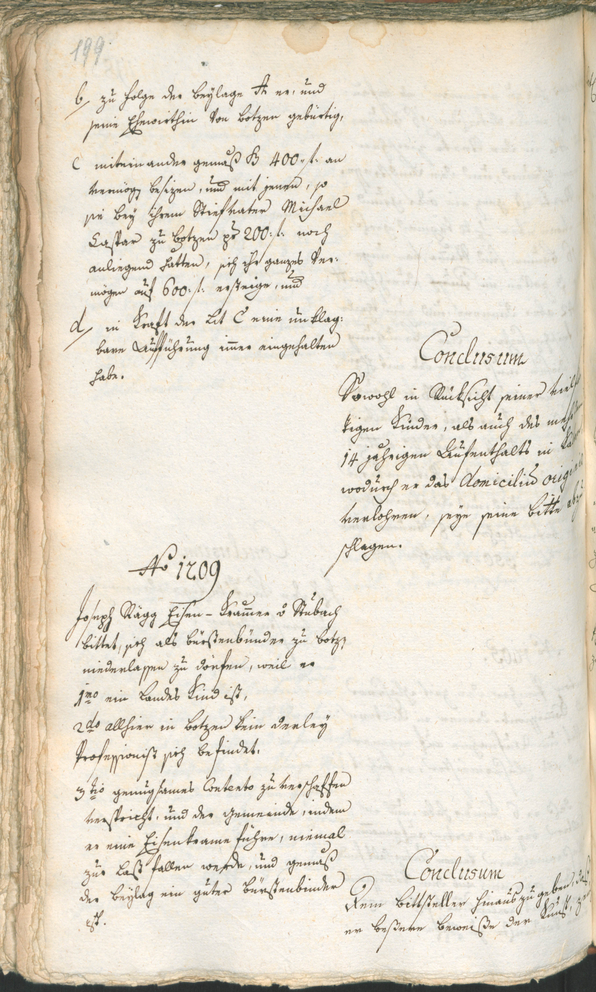 199.
b, zu folge der Beÿlage A er, und
seine Ehewirthin von Botzen gebürtig,
c miteinander gemäß B 400 f. an
vermög besizen, und mit jenen, so
sie beÿ ihrem Stiefvater Michael
Caspar zu Botzen pr 200 f. noch
anliegend hätten, sich ihr ganzes Ver:
mögen auf 600 f. ersteige, und
d, in Kraft der Lit C eine unklag:
bare Aufführung immer eingehalten
habe.
Conclusum
Sowohl in Rücksicht seiner
Kinder, als auch des
14 jährigen Aufenthalts in
wodurch er das domicilium
verlohren, seÿe seine Bitte
schlagen.
No 1209
Joseph Rägg Eisen-Kramer
bittet, sich als bürstenbünder zu Botz:
niederlassen zu dörfen, weil er
1mo ein Landes Kind ist,
2do allhier in Botzen kein derleÿ
Professionist sich befindet.
3tio genugsames Contento zu verschaffen
verspricht, und der Gemeinde, indem
er eine Eisenkrame führe, niemal
zur Last fallen werde, und gemäß
der beÿlag ein guter bürstenbinder
ist.
Conclusum
Dem Bittsteller hinauszugeben,
er bessere beweise der Kunst,